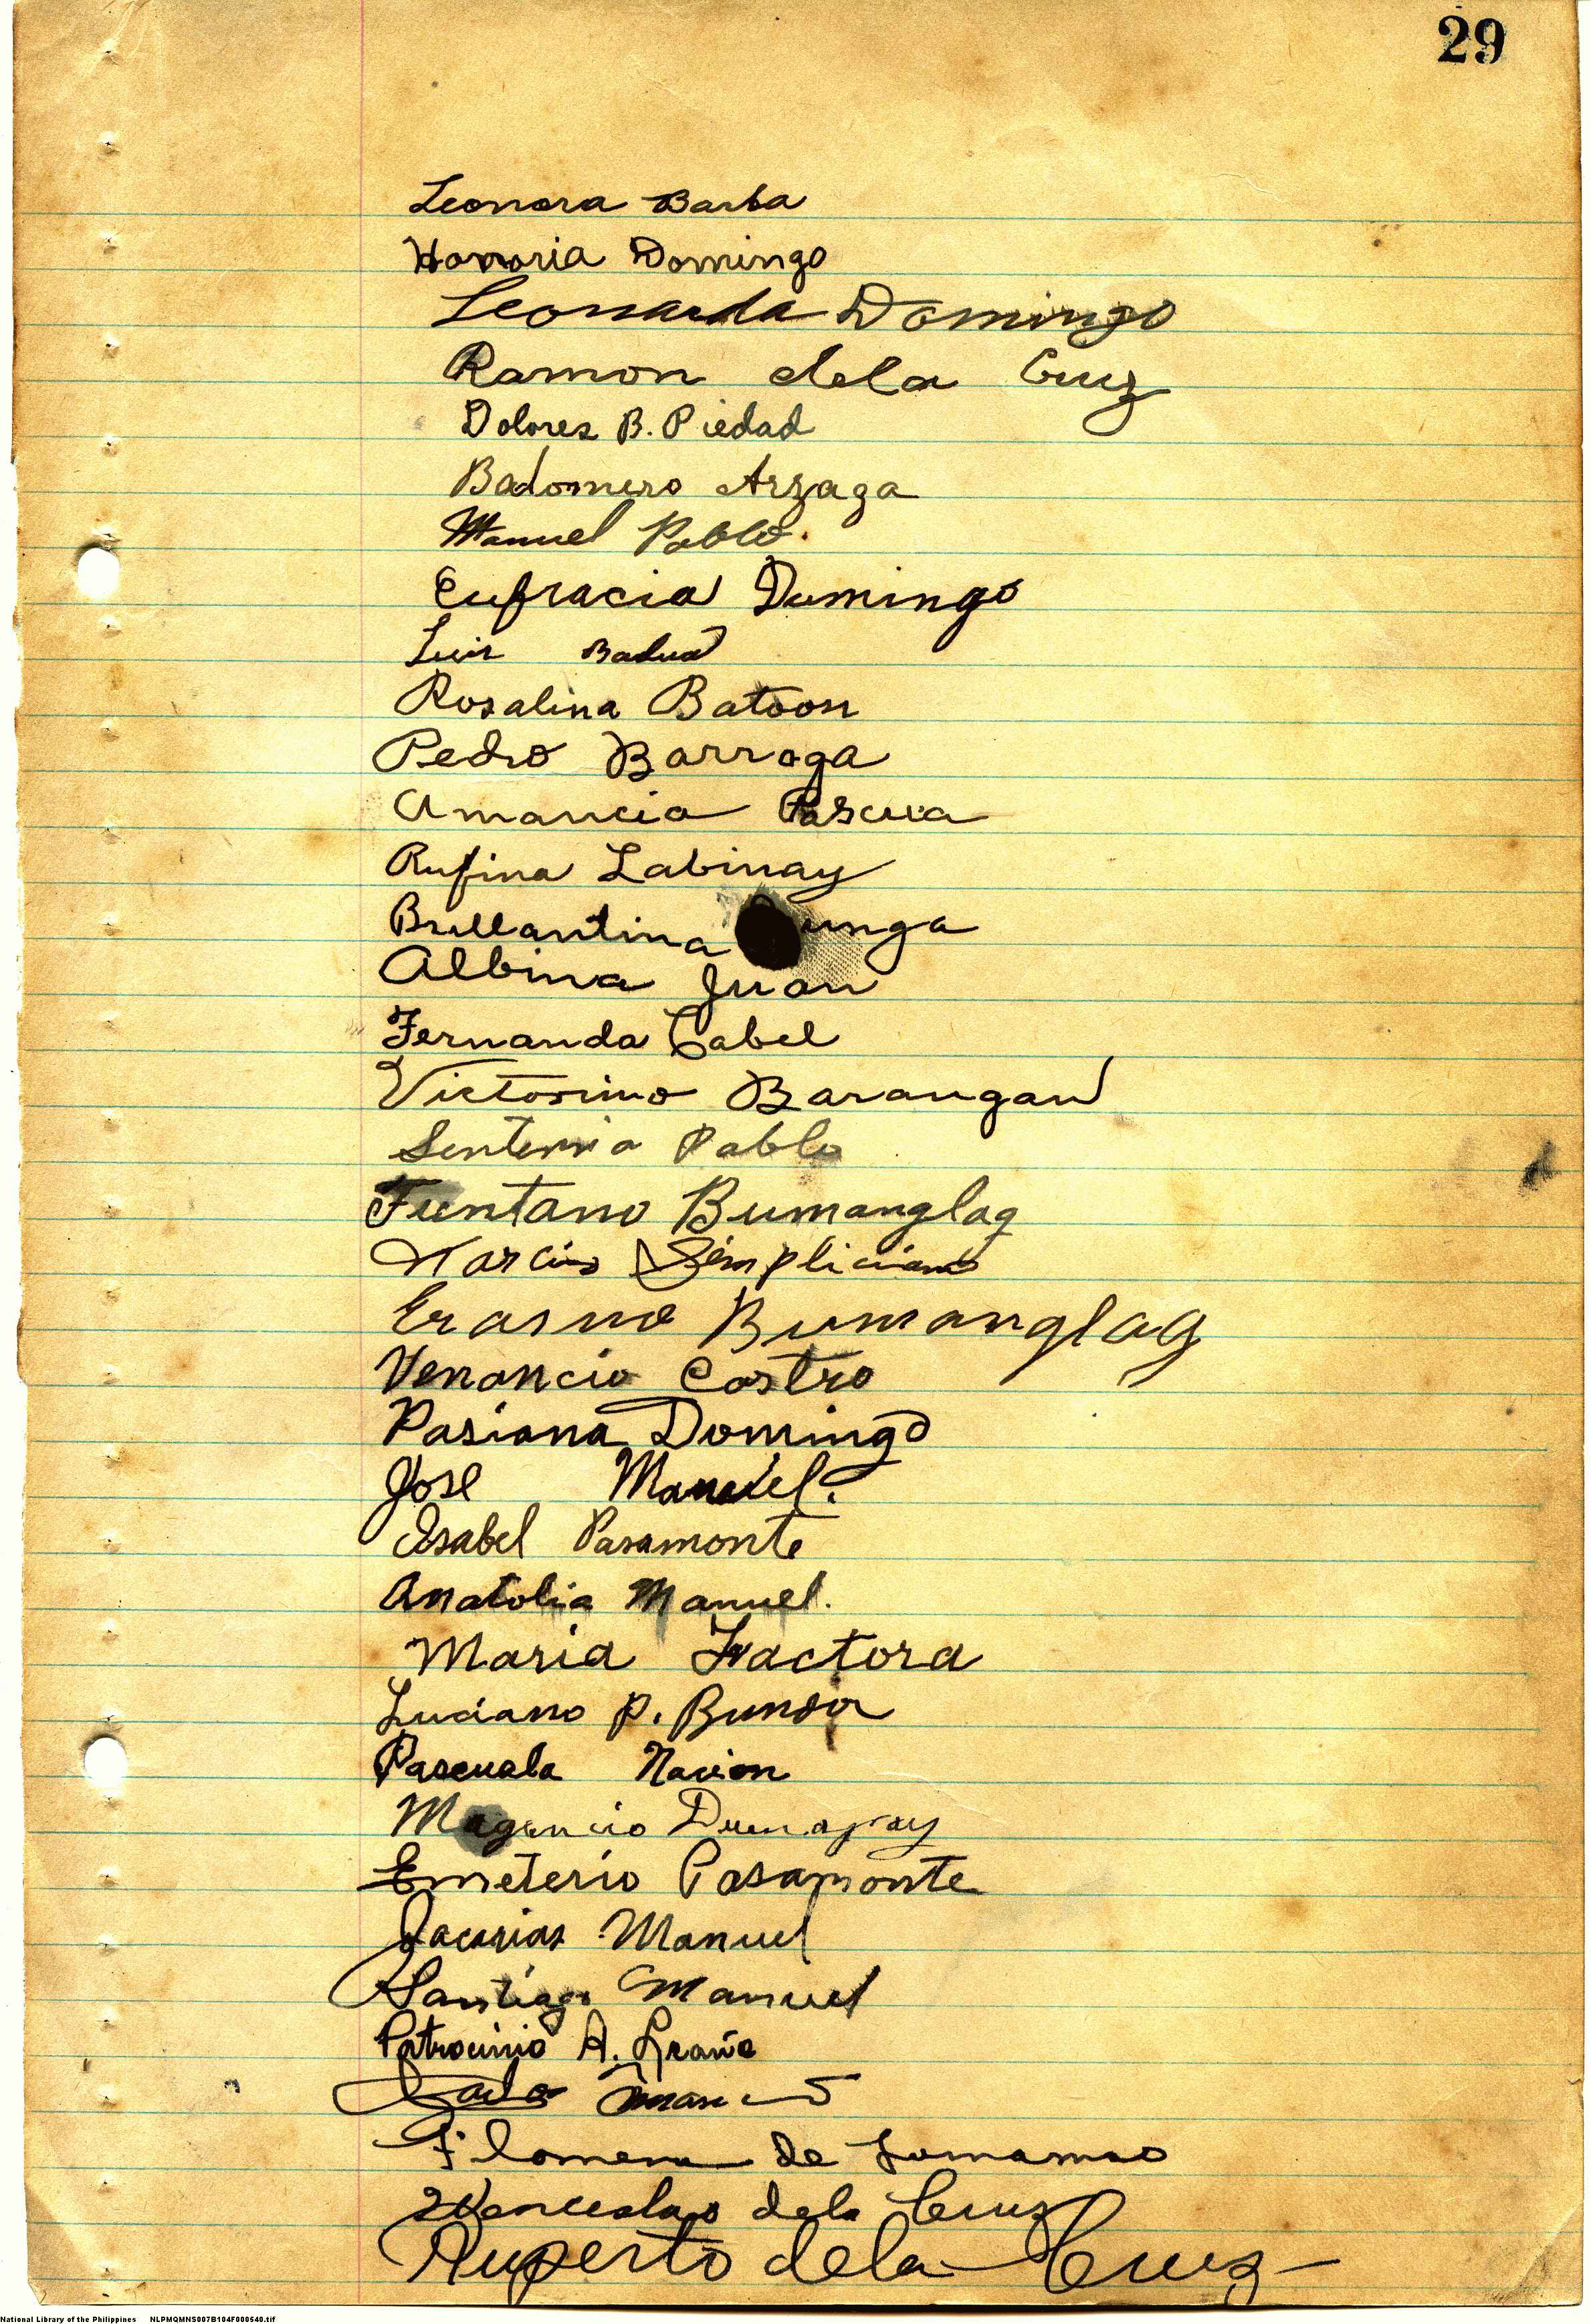 29
Leonora Barba
Honoria Domingo
Leonarda Domingo
Ramon dela Cruz
Dolores B. Piedad
Badomero Arzaga
Manuel Pablo.
Eufracia Dumingo
Luis Badua
Rosalina Batoon
Pedro Barroga
Amancia Pascua
Rufina Labinay
Brillantina
Albina Juan
Fernanda Cabel
Victorino Barangan
Pablo
Bumanglag
Narciso Simpliciano
Erasmo Bumanglag
Venancio Castro
Pasiana Domingo
Jose Manuel.
Isabel Pasamonte
Anatolia Manuel.
Maria Factora
Luciano P.
Pascuala Nacion
Dumapay
Emeterio Pasamonte
Zacarias Manuel
Santiago Manuel
Patrocinio A.
Filomena de
Wenceslao dela Cruz
Ruperto dela Cruz
National Library of the Philippines NLPMQMNS007B104F000540.tif